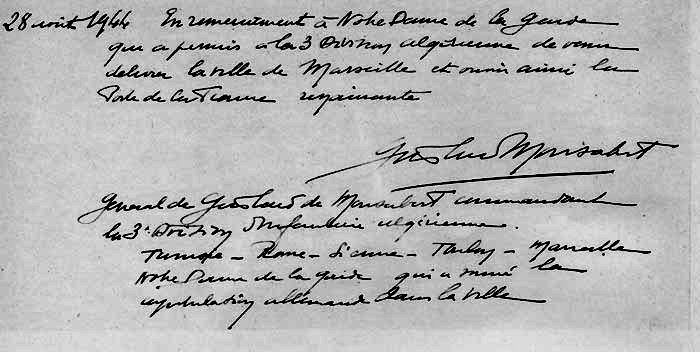 28 août 1944 En remerciement à Notre Dame de la Garde
qui a permis à la 3 Division algérienne de venir
délivrer la ville de Marseille et ouvrir ainsi la
Porte de la France renaissante
Goislard Monsabert
Général de Goislard de Monsabert commandant
la 3e Division d'Infanterie algérienne.
Rome - Sienne - Toulon - Marseille
Notre Dame de la garde qui a la
capitulation allemande dans la ville